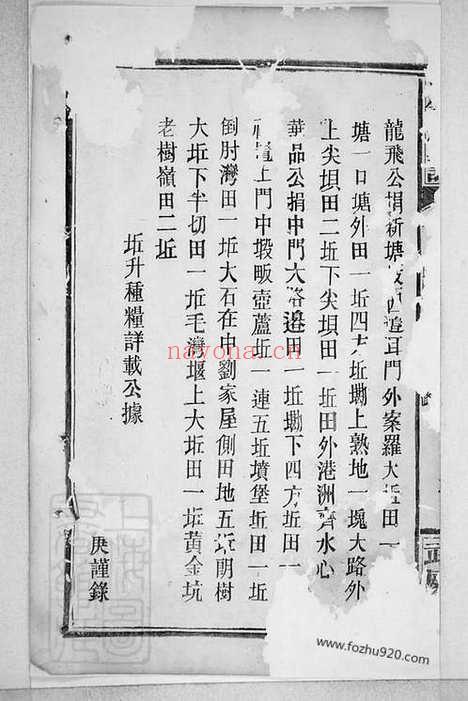 龍飛公捐新塘邊耳門外案羅大坵田一
塘一口塘外田一坵四方坵墈上熟地一塊大路外
上尖垻田二坵下尖垻田一坵田外港洲齊水心
華品公捐中門大路邉田一坵墈下四方坵田一
上門中塅畈壺蘆坵一連五坵墳堡坵田一坵
倒肘灣田一坵大石在中劉家屋側田地五坵朗樹
大坵下半切田一坵毛灣堰上大坵田一坵黃金坑
老樹嶺田二坵
坵升種糧詳載公據
庚謹錄
nayona.cn
www.fozhu920.com